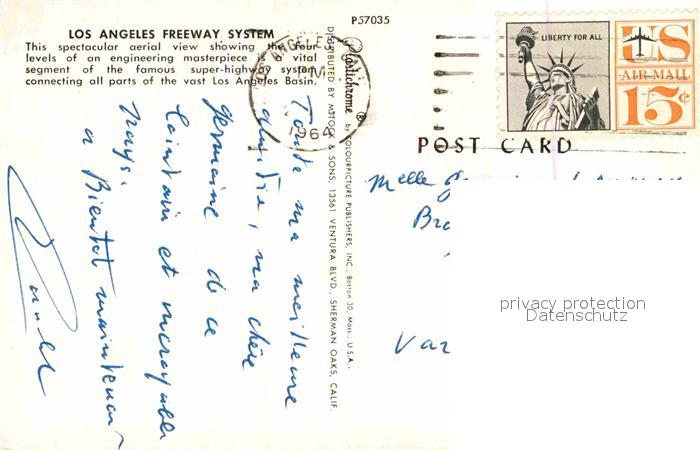 P57035
LOS ANGELES FREEWAY SYSTEM
This spectacular aerial view showing the four
levels of an engineering masterpiece is a vital
segment of the famous super-highway system
connecting all parts of the vast Los Angeles Basin.
ANGELES
1964
Plastichrome ® by COLOURPICTURE PUBLISHERS, INC., Boston 30, Mass., U.S.A.
DISTRIBUTED BY MITOCK & SONS, 13561 VENTURA BLVD., SHERMAN OAKS, CALIF.
LIBERTY FOR ALL
US
AIR MAIL
15¢
POST CARD
Toute ma meilleure
amitié, ma chère
Germaine de ce
lointain et incroyable
pays.
a Bientot maintenant
Melle
Var
privacy protection
Datenschutz